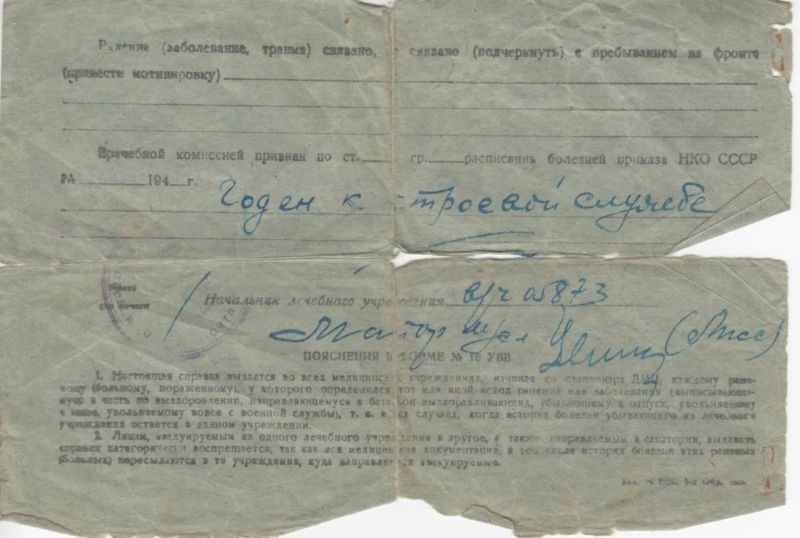 Ранение (заболевание, травма) связано, не связано (подчеркнуть) с пребыванием на фронте
(привести мотивировку)
Врачебной комиссией признан по ст. гр. расписания болезней приказа НКО СССР
№ 194 г.
Годен к строевой службе
Место
для печати
Начальник лечебного учреждения в/ч 05873
Майор м/сл
ПОЯСНЕНИЯ К ФОРМЕ № 16 УВВ
1. Настоящая справка выдается во всех медицинских учреждениях, начиная со стационара ДМП, каждому ране-
ному (больному, пораженному), у которого определился тот или иной исход ранения или заболевания (выписывающе-
муся в часть по выздоровлении, направляющемуся в батальон выздоравливающих, убывающему в отпуск, увольняемому
в запас, увольняемому вовсе с военной службы), т. е. в случаях, когда история болезни убывающего из лечебного
учреждения остается в данном учреждении.
2. Лицам, эвакуируемым из одного лечебного учреждения в другое, а также направляемым в санатории, выдавать
справки категорически воспрещается, так как вся медицинская документация, в том числе истории болезни этих раненых
(больных) пересылаются в те учреждения, куда направляются эвакуируемые.